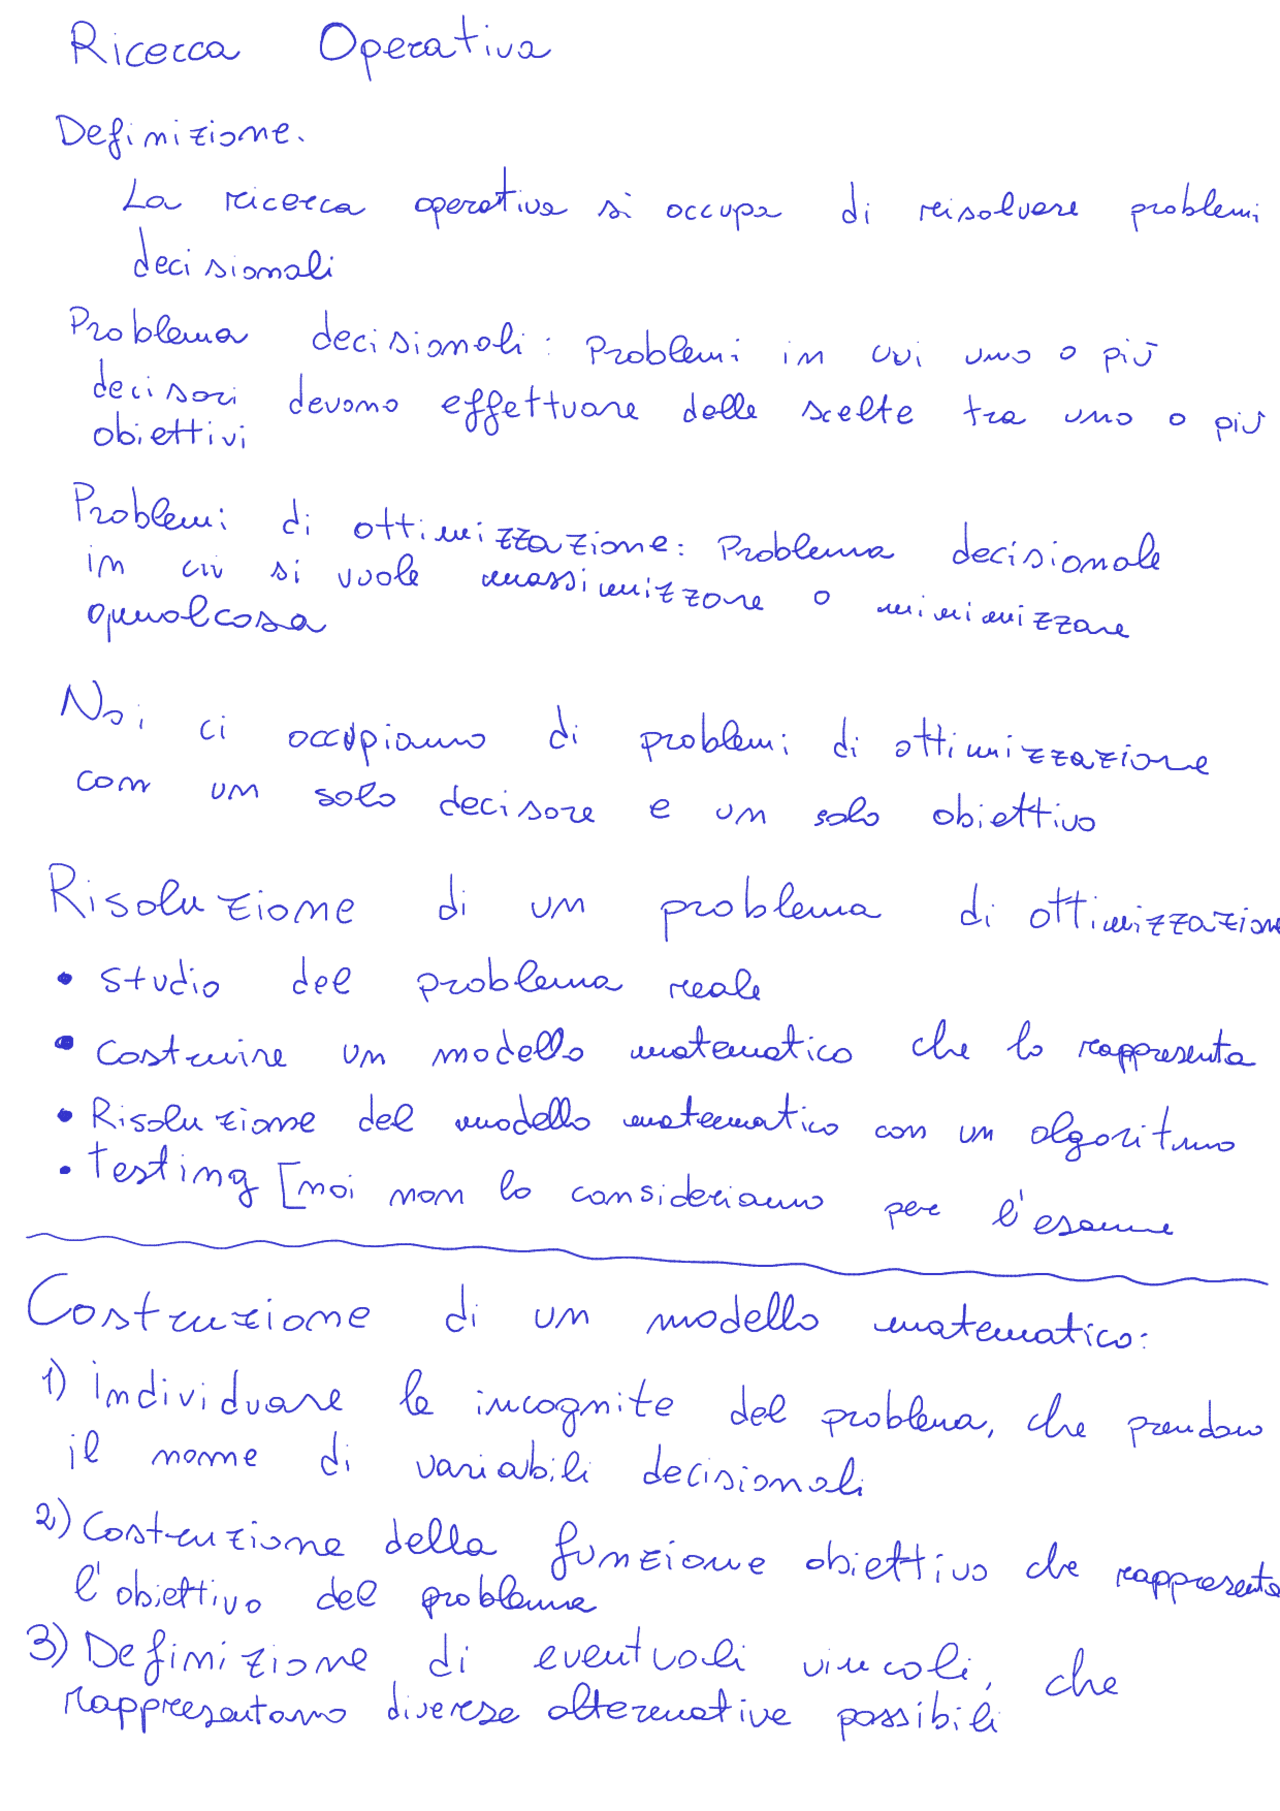 Ricerca Operativa
Definizione.
La ricerca operativa si occupa di risolvere problemi
decisionali
Problema decisionali: Problemi in cui uno o più
decisori devono effettuare delle scelte tra uno o più
obiettivi
Problemi di ottimizzazione: Problema decisionale
in cui si vuole massimizzare o minimizzare
qualcosa
Noi ci occupiamo di problemi di ottimizzazione
con un solo decisore e un solo obiettivo
Risoluzione di un problema di ottimizzazione
• studio del problema reale
• Costruire un modello matematico che lo rappresenta
• Risoluzione del modello matematico con un algoritmo
• testing [noi non lo consideriamo per l'esame
Costruzione di un modello matematico:
1) individuare le incognite del problema, che prendono
il nome di variabili decisionali
2) Costruzione della funzione obiettivo che rappresenta
l'obiettivo del problema
3) Definizione di eventuali vincoli, che
rappresentano diverse alternative possibili